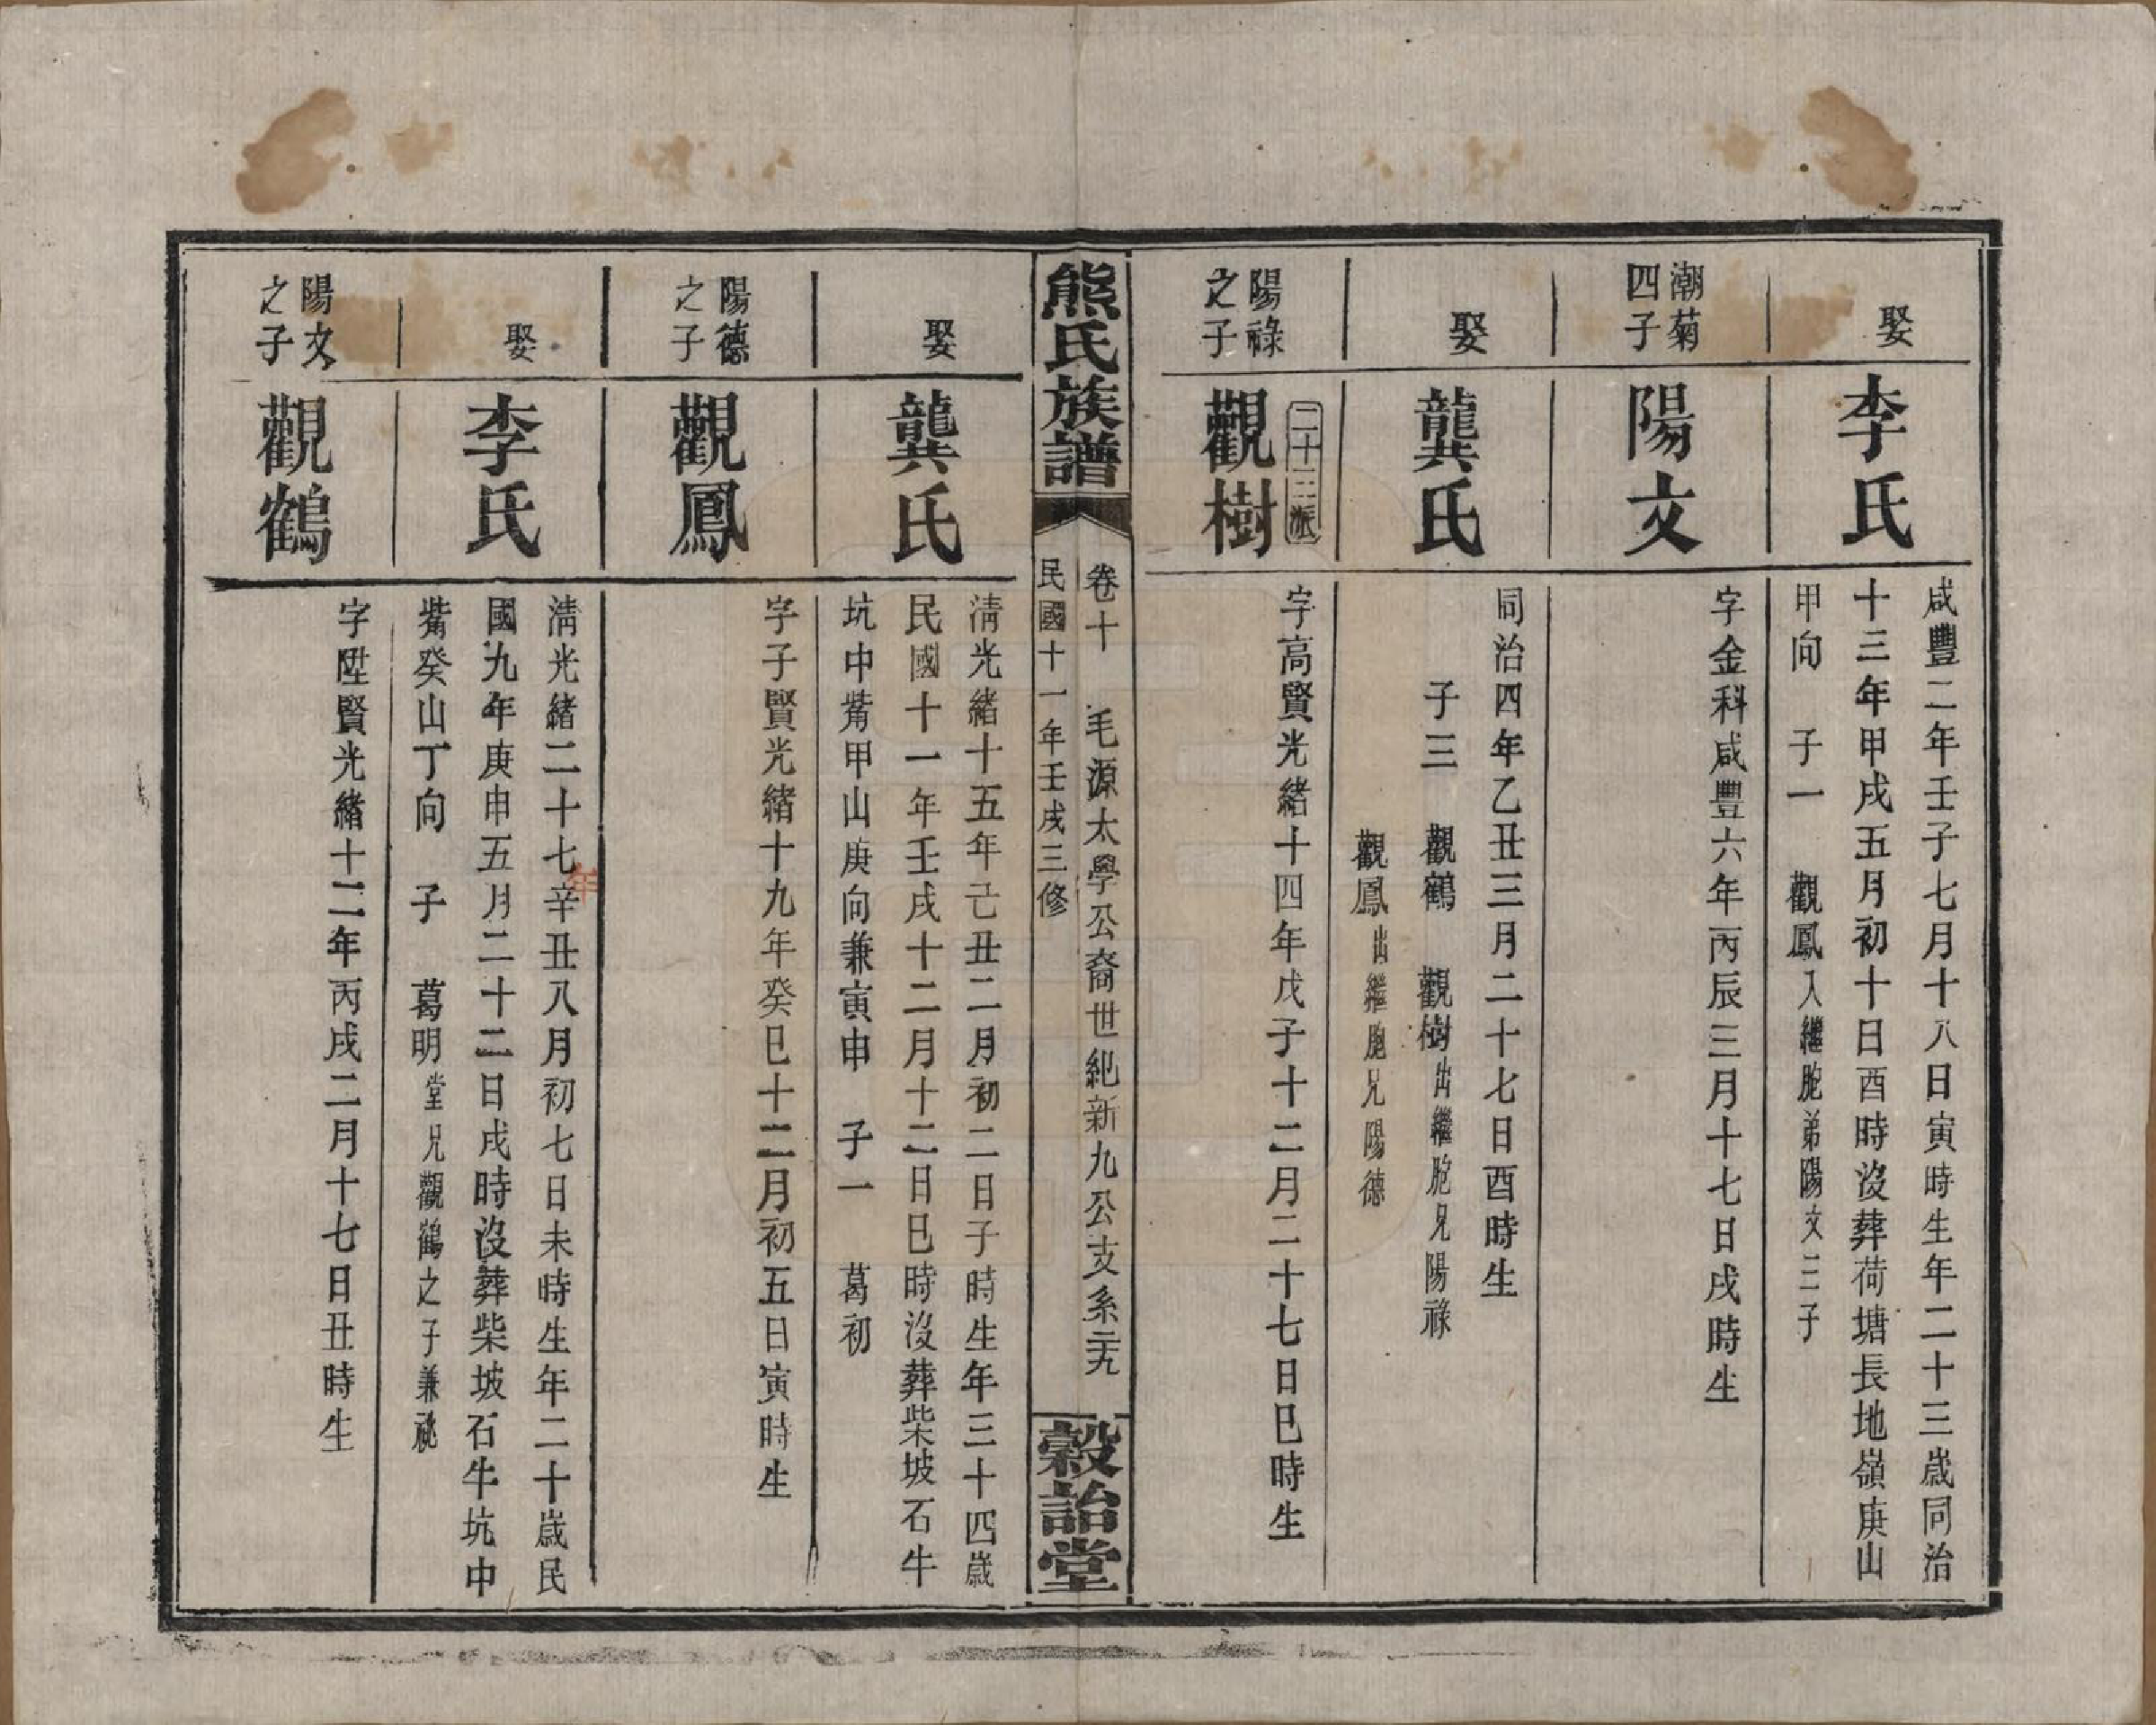 娶
李氏
咸豐二年壬子七月十八日寅時生年二十三歲同治
十三年甲戌五月初十日酉時沒葬荷塘長地嶺庚山
甲向　子一　觀鳳入繼胞弟陽文三子
潮菊
四子
陽文
字金科咸豐六年丙辰三月十七日戌時生
娶
龔氏
同治四年乙丑三月二十七日酉時生
子三　觀鶴　觀樹出繼胞兄陽祿
觀鳳出繼胞兄陽德
二十三派
陽祿
之子
觀樹
字高賢光緒十四年戊子十二月二十七日巳時生
熊氏族譜
卷十　毛源太學公裔世紀新九公支系二十九
民國十一年壬戌三修
穀詒堂
娶
龔氏
淸光緒十五年己丑二月初二日子時生年三十四歲
民國十一年壬戌十二月十二日巳時沒葬柴坡石牛
坑中觜甲山庚向兼寅申　子一　葛初
陽德
之子
觀鳳
字子賢光緒十九年癸巳十二月初五日寅時生
娶
李氏
淸光緒二十七年辛丑八月初七日未時生年二十歲民
國九年庚申五月二十二日戌時沒葬柴坡石牛坑中
觜癸山丁向　子　葛明堂兄觀鶴之子兼祧
陽文
之子
觀鶴
字陞賢光緒十二年丙戌二月十七日丑時生